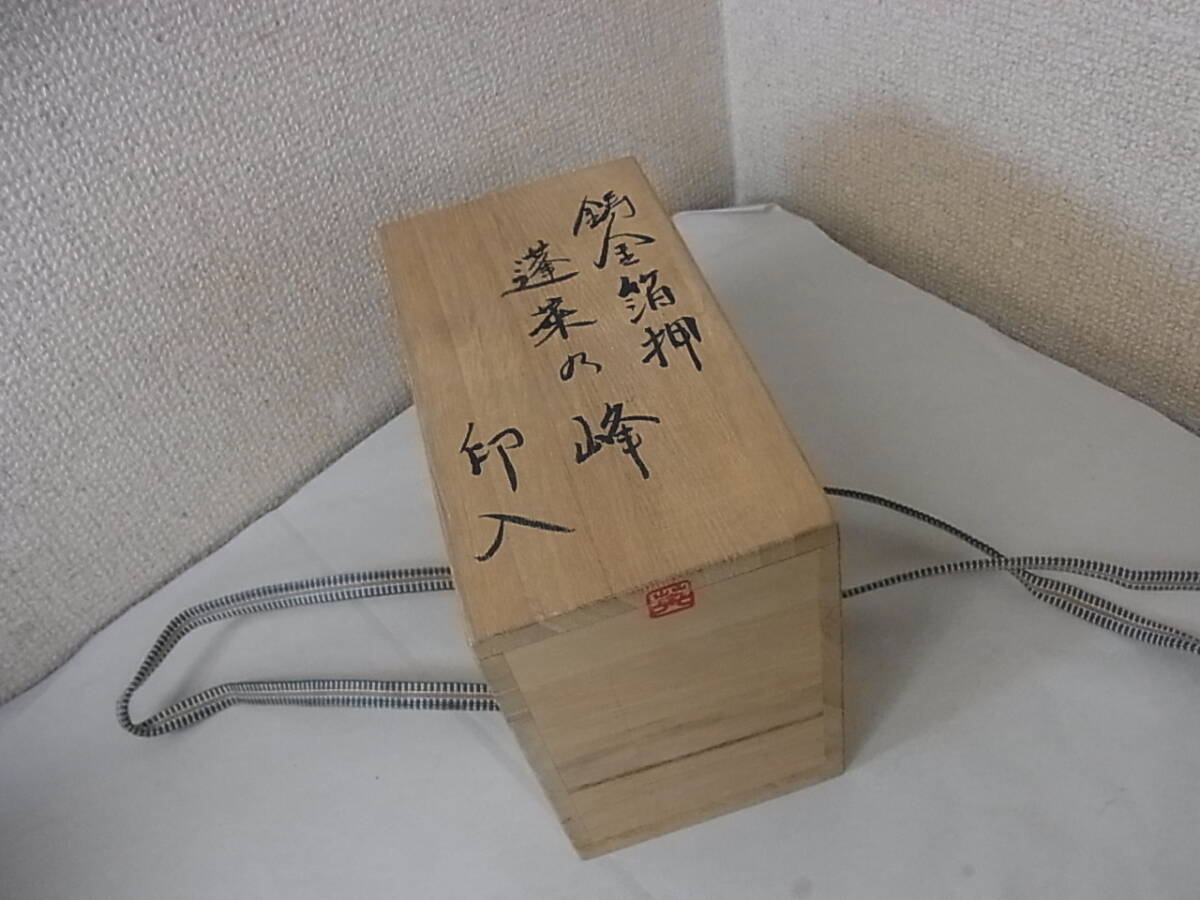 鋳金箔押
蓬莱の峰
印入